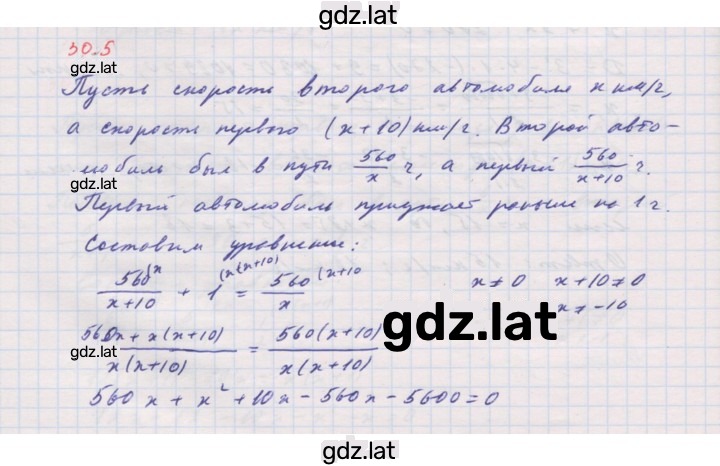 gdz.lat
30.5
gdz.lat
Пусть скорость второго автомобиля x км/ч,
а скорость первого (x+10) км/г. Второй авто-
мобиль был в пути 560/x ч, а первый 560/(x+10) ч.
Первый автомобиль приезжает раньше на 1 г.
gdz.lat
Составим уравнение:
560^(x/(x+10) + 1^(x(x+10) = 560^(x+10/x x≠0 x+10≠0
x≠-10
gdz.lat
(560x + x(x+10))/(x(x+10)) = 560(x+10)/(x(x+10))
gdz.lat
560x + x² + 10x - 560x - 5600 = 0
gdz.lat
gdz.lat